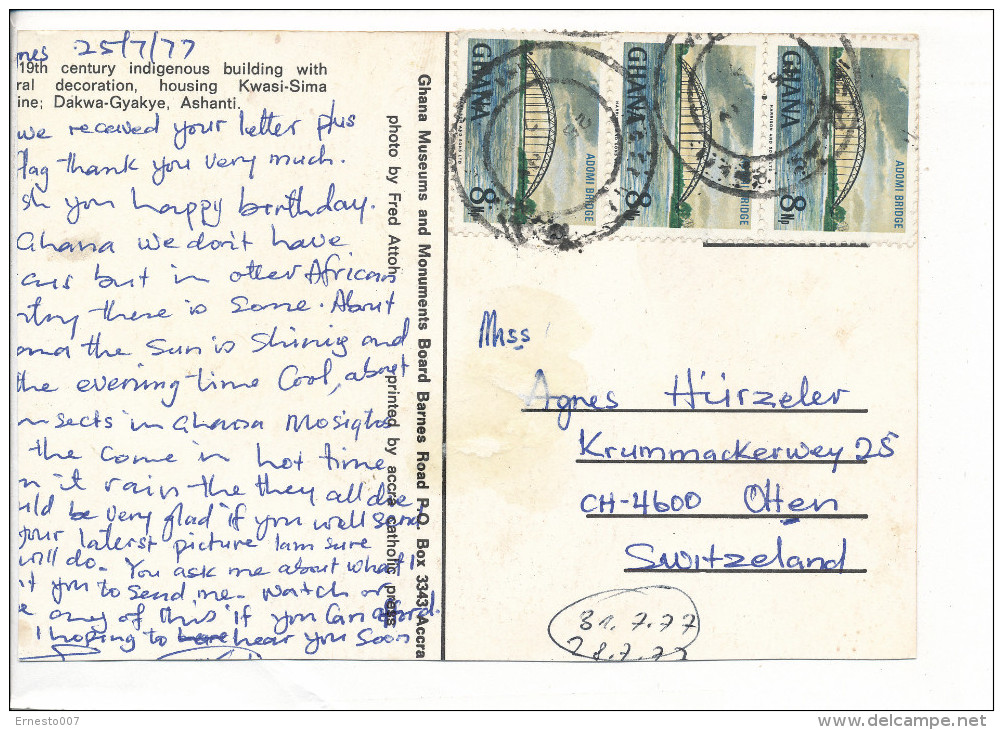 nes 25/7/77
19th century indigenous building with
ral decoration, housing Kwasi-Sima
ine; Dakwa-Gyakye, Ashanti.
we received your letter plus
lag thank you very much.
sh you happy birthday.
Ghana we don't have
but in other African
ntry there is some. About
the sun is shining and
the evening-time Cool, about
nsects in Ghana Mosigtos
the come in hot time
n it rain the they all die
uld be very glad if you well send
your laterst picture Iam sure
will do. You ask me about what I
nt you to send me. watch or
e any of this if you can afford.
I hoping to hear you Soon
Ghana Museums and Monuments Board Barnes Road P.O. Box 3343 Accra
photo by Fred Attoh printed by accra catholic press
GHANA
ADOMI BRIDGE
8 Np
GHANA
ADOMI BRIDGE
8 Np
GHANA
ADOMI BRIDGE
8 Np
Miss
Agnes Hürzeler
Krummackerwey 25
CH-4600 Olten
Switzeland
31.7.77
28.7.77
Ernesto007
www.delcampe.net